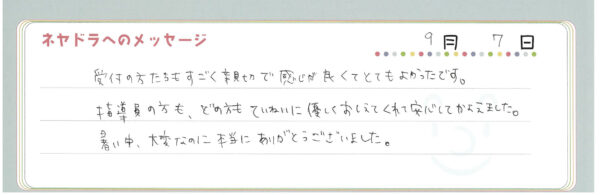 ネヤドラへのメッセージ
9月 7日
受付の方たちもすごく親切で感じが良くてとてもよかったです。
指導員の方も、どの方もていねいに優しくおしえてくれて安心してかよえました。
暑い中、大変なのに本当にありがとうございました。